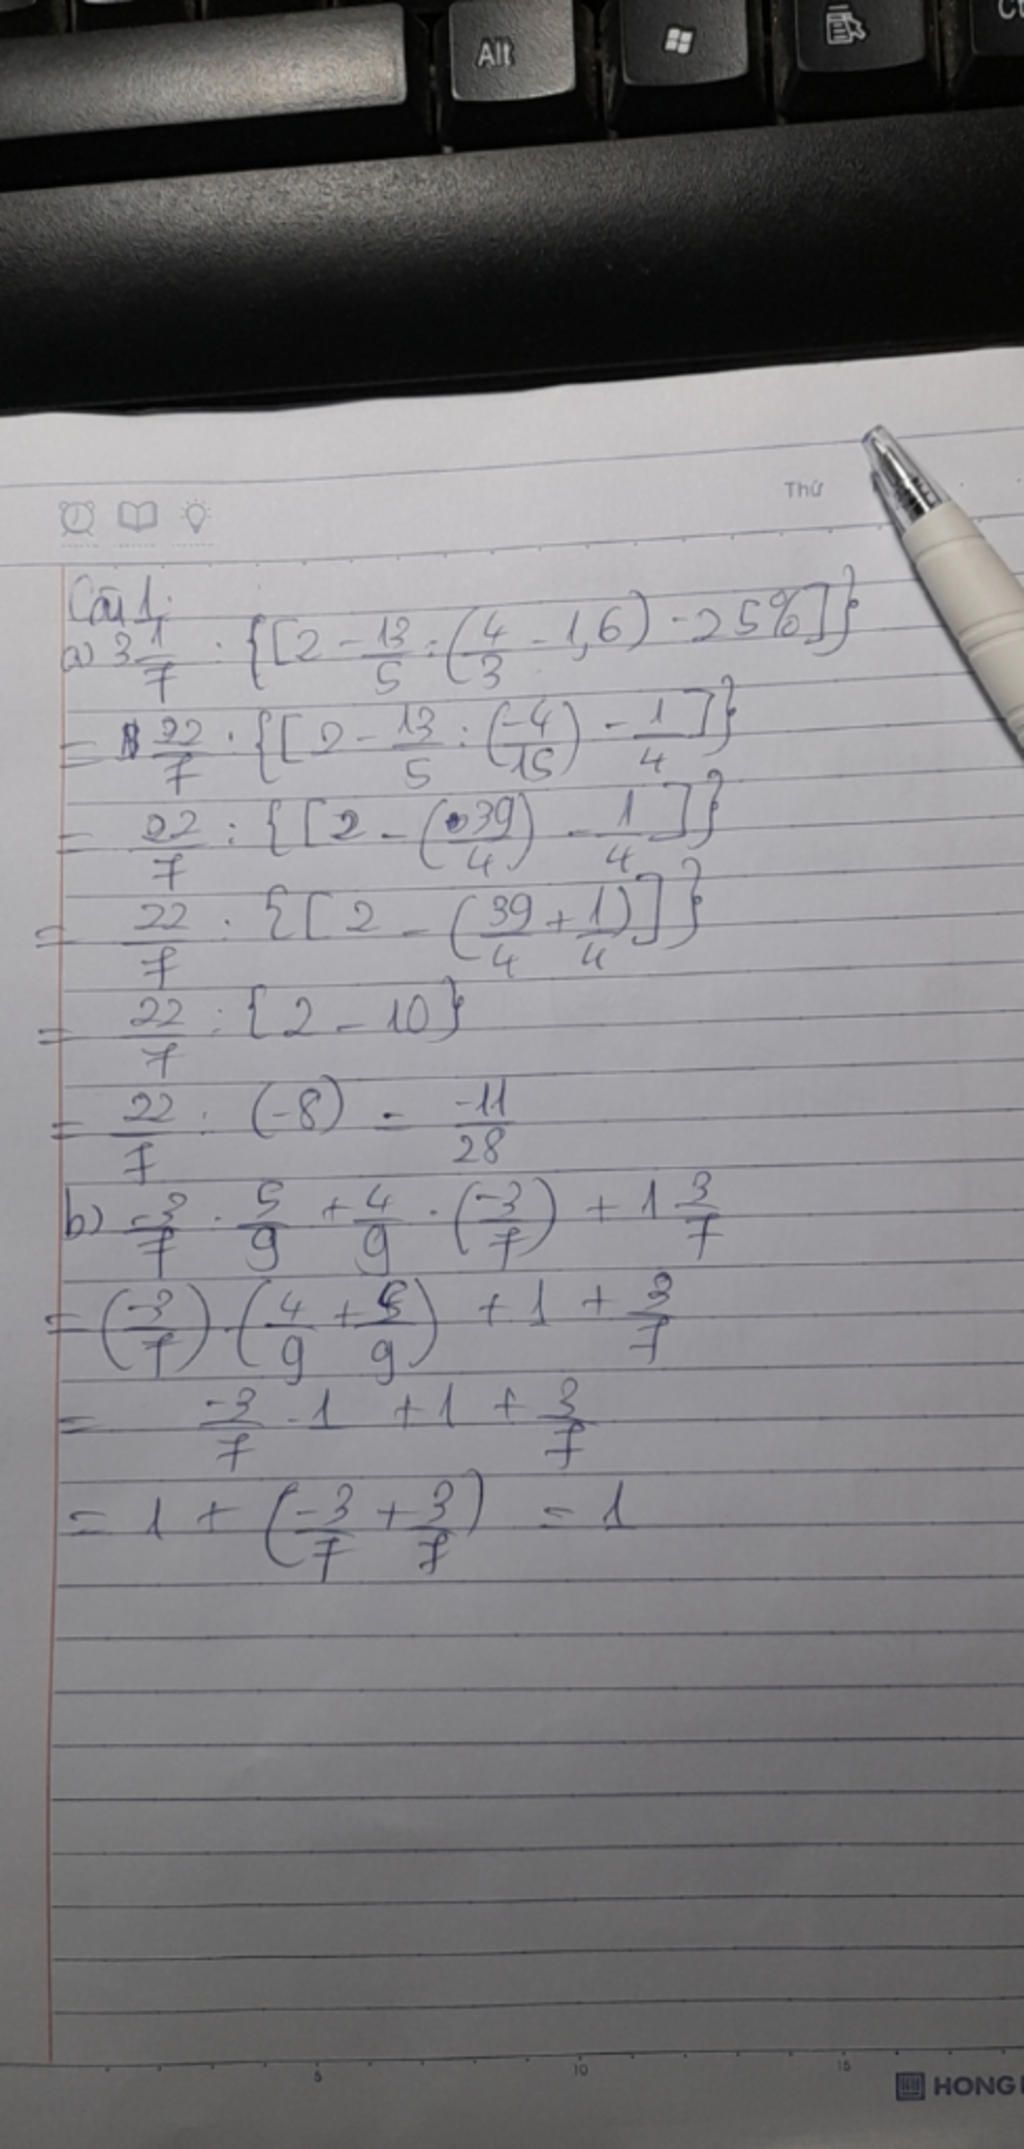 Alt
Ct
Thứ
Câu 1:
a) 3 1/7 : {[2 - 13/5 : (4/3 - 1,6) - 25%]}
= 22/7 : {[2 - 13/5 : (-4/15) - 1/4]}
= 22/7 : {[2 - (39/4) - 1/4]}
= 22/7 : {[2 - (39/4 + 1/4)]}
= 22/7 : {2 - 10}
= 22/7 : (-8) = -11/28
b) -3/7 . 5/9 + 4/9 . (-3/7) + 1 3/7
= (-3/7) . (4/9 + 5/9) + 1 + 3/7
= -3/7 . 1 + 1 + 3/7
= 1 + (-3/7 + 3/7) = 1
5 10 15
HONG